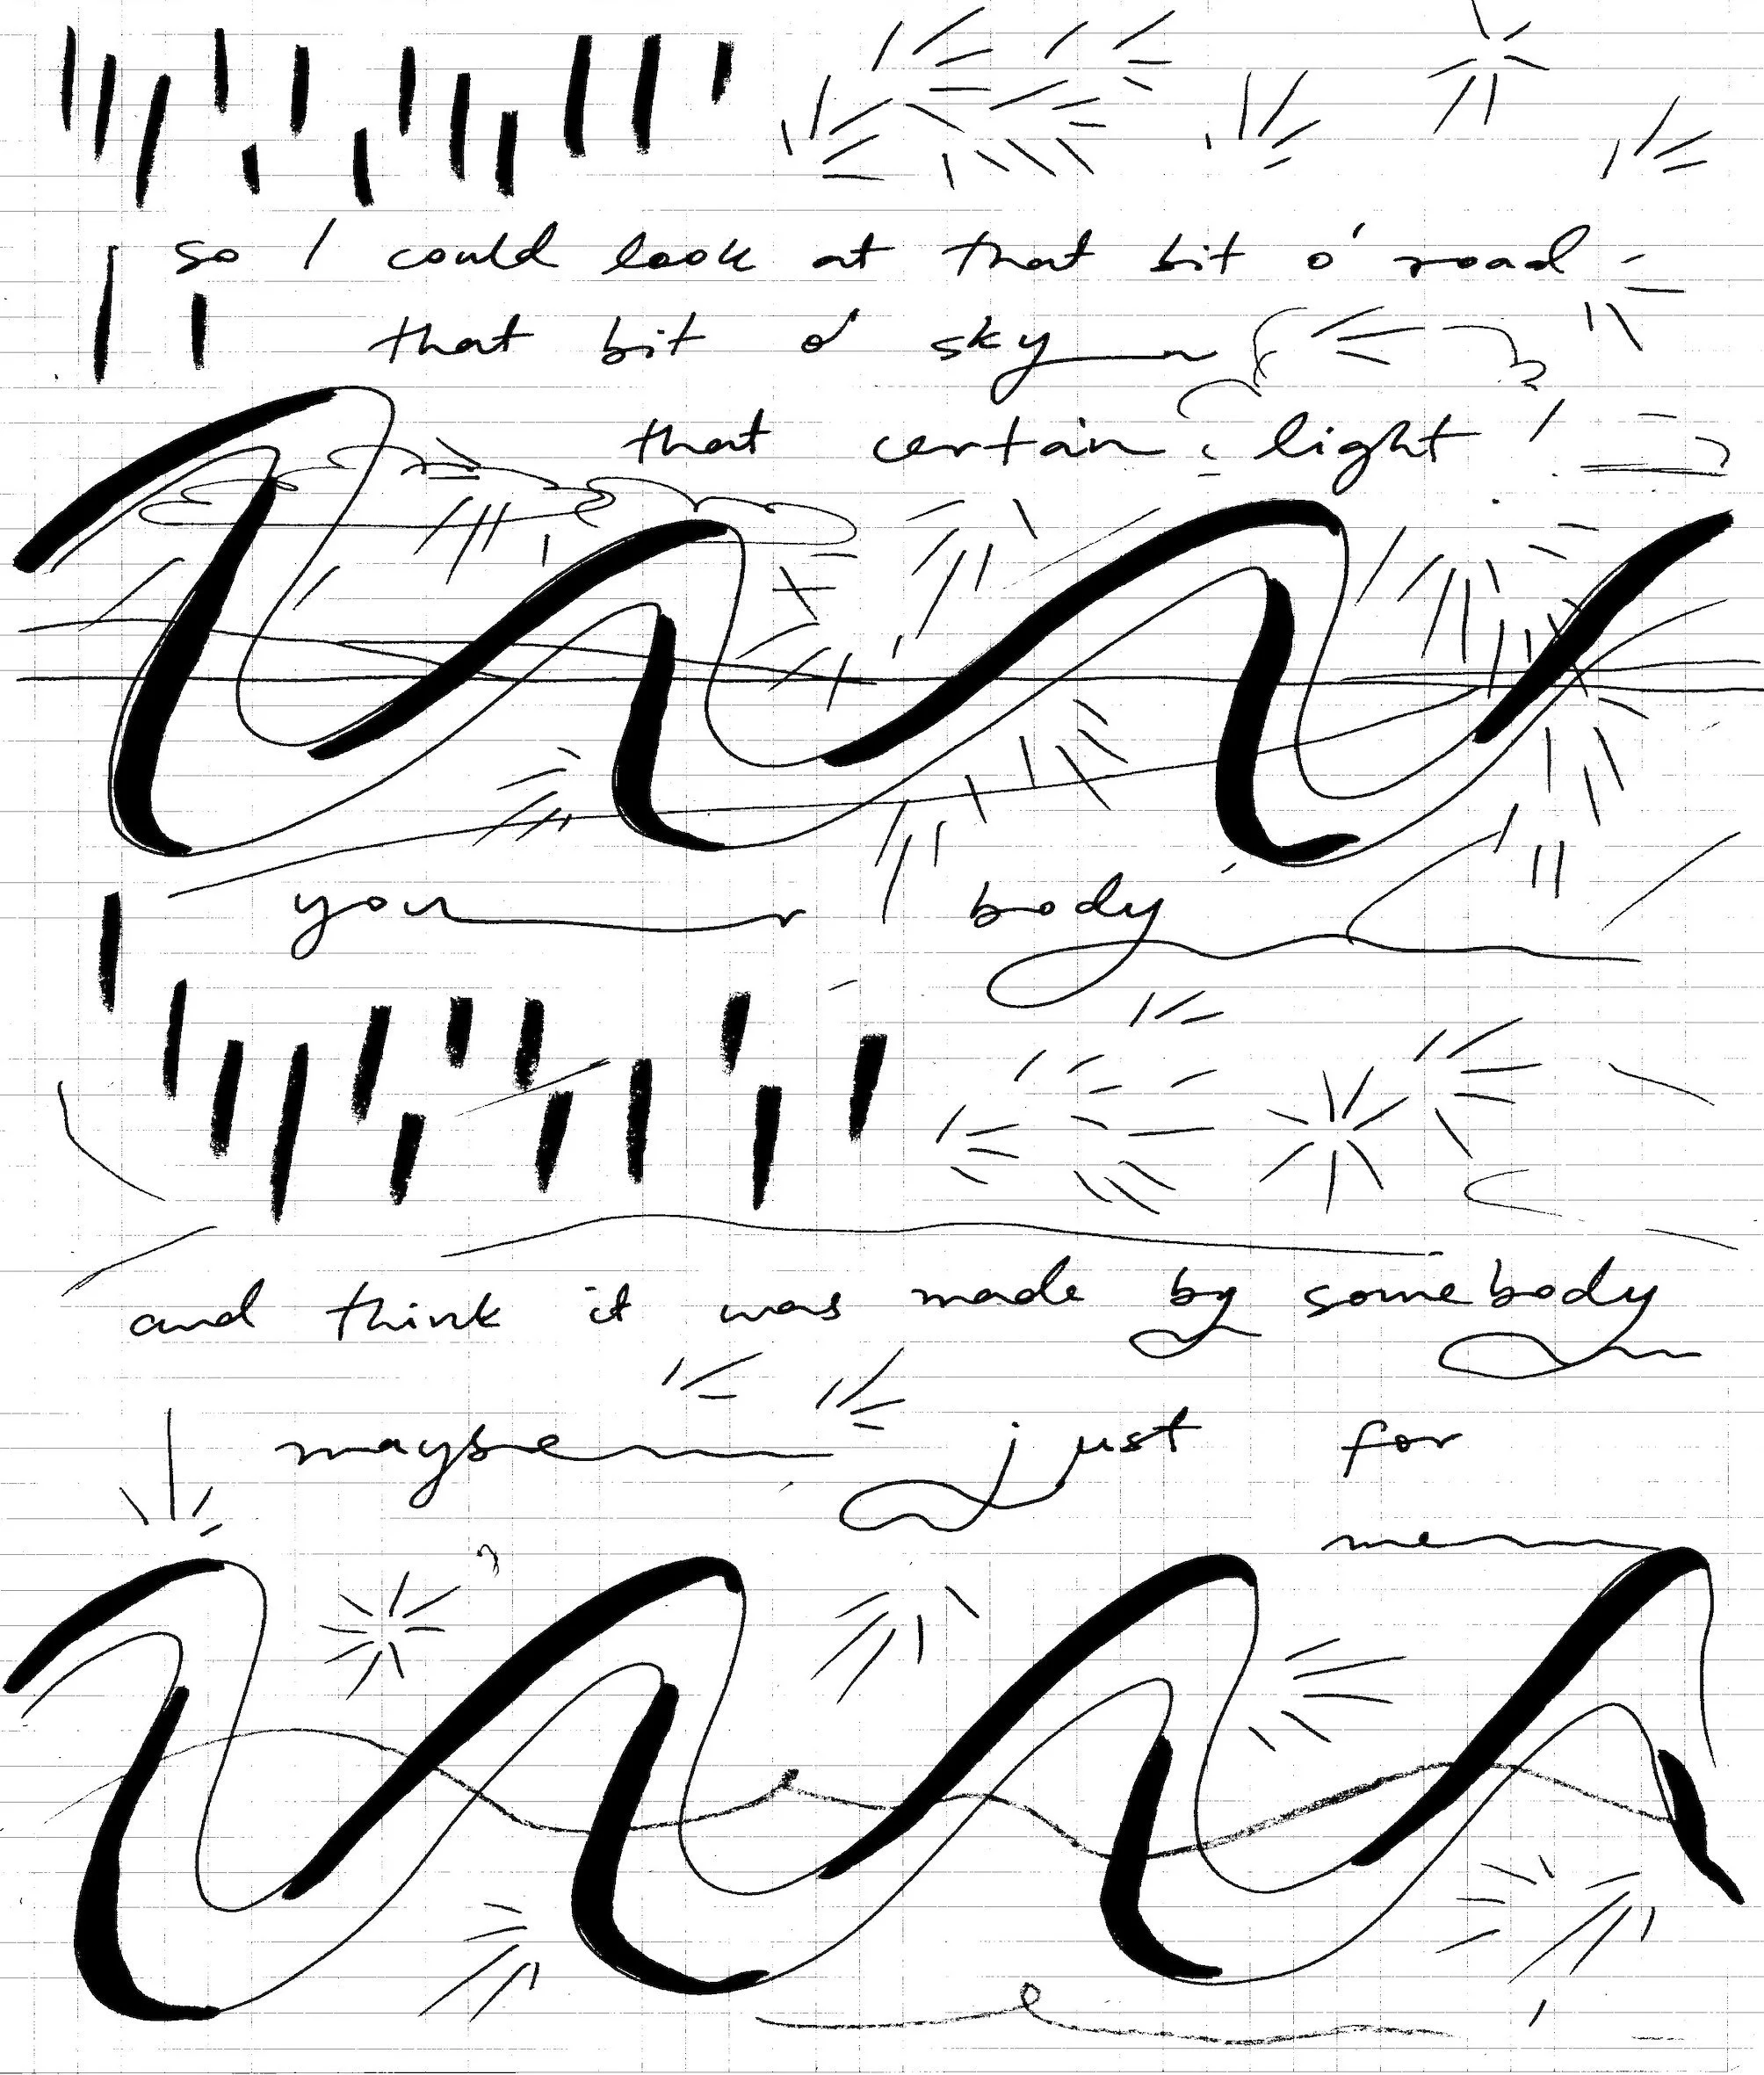 so I could look at that bit o' road -
that bit o' sky
that certain light
your body
and think it was made by somebody
maybe just for
me